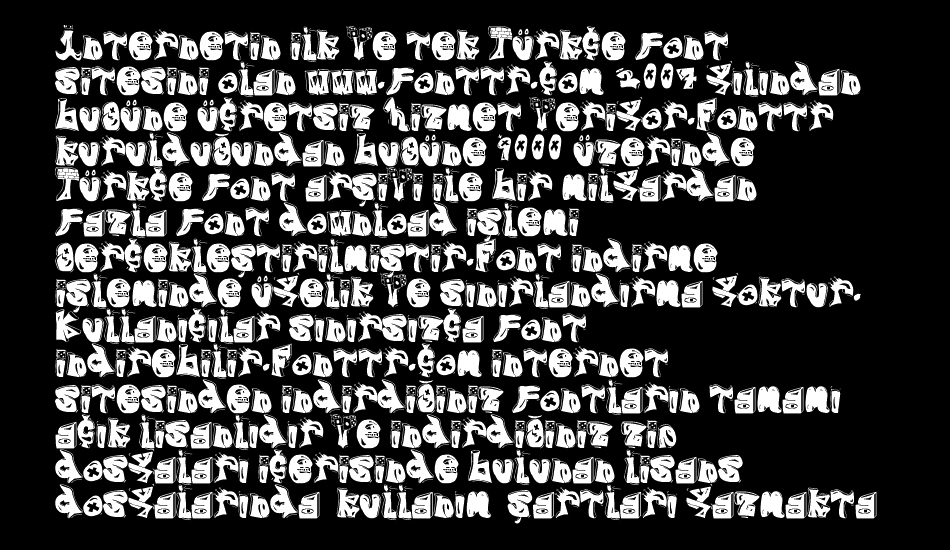 İnternetin ilk Ve tek Türkçe Font
sitesini olan www.Fonttr.Com 2007 Yilindan
bugüne ücretsiz hizmet VeriYor.Fonttr
kurulduğundan bugüne 9000 üzerinde
Türkçe Font arşiVi ile bir milYardan
Fazla Font download işlemi
gerçekleştirilmiştir.Font indirme
işleminde üYelik Ve sinirlandirma Yoktur.
Kullaniçilar sinirsizça Font
indirebilir.Fonttr.Çom internet
sitesinden indirdiğiniz Fontlarin tamami
açik lisanlidir Ve indirdiğiniz zip
dosYalari içerisinde bulunan lisans
dosYalarinda kullanim şartlari Yazmakta